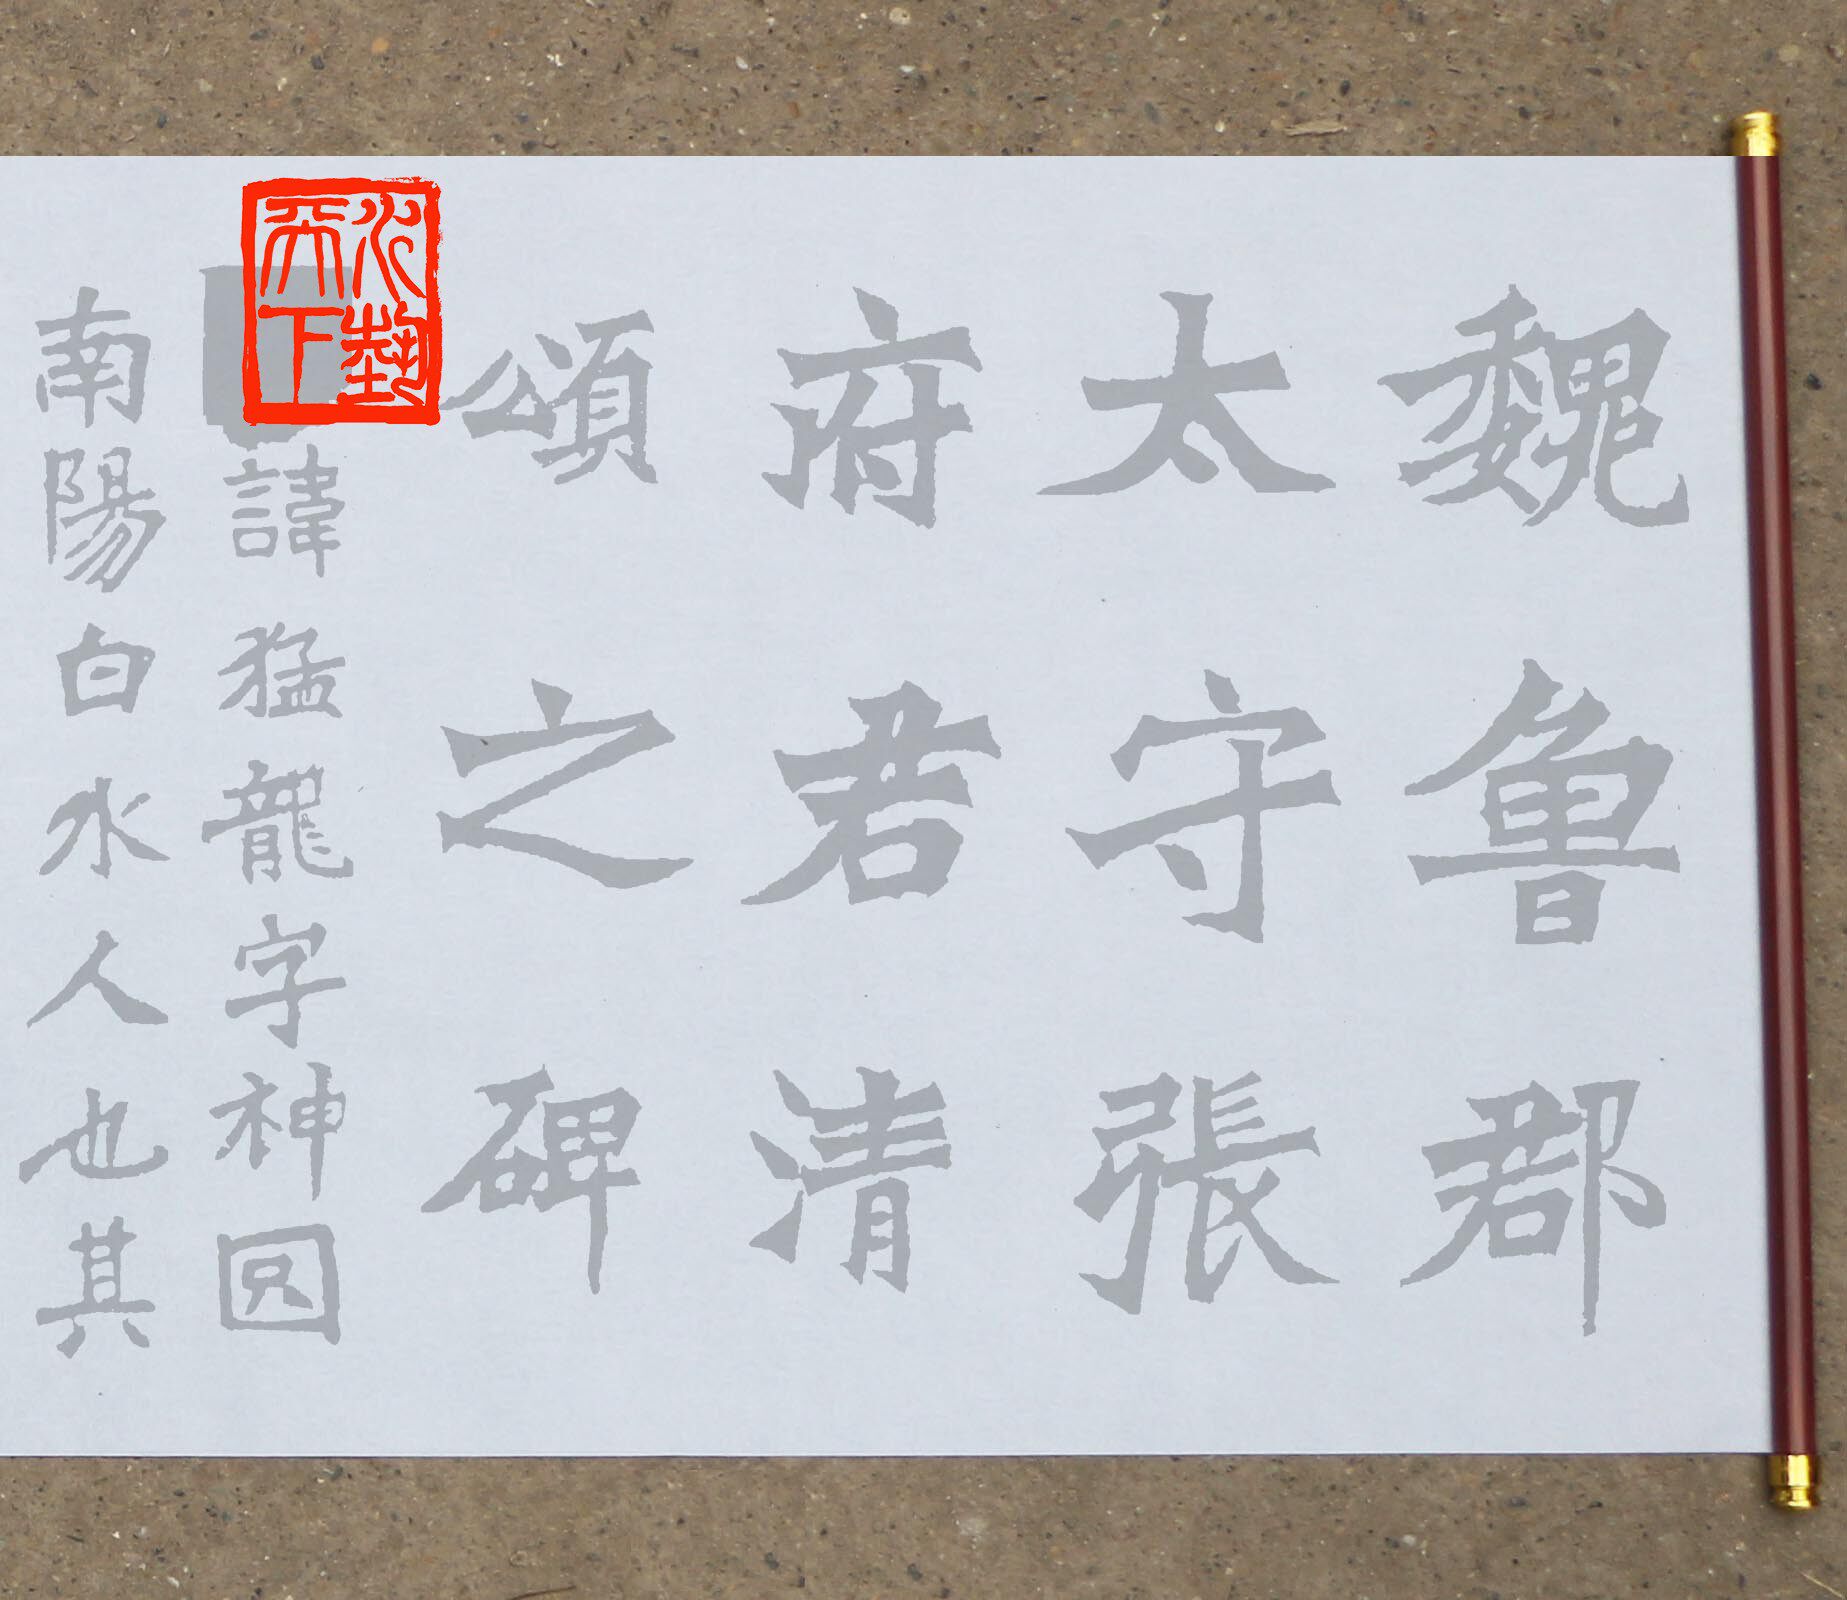 魏魯郡
太守張
府君清
頌之碑
諱猛龍字神囧
南陽白水人也其
封天下